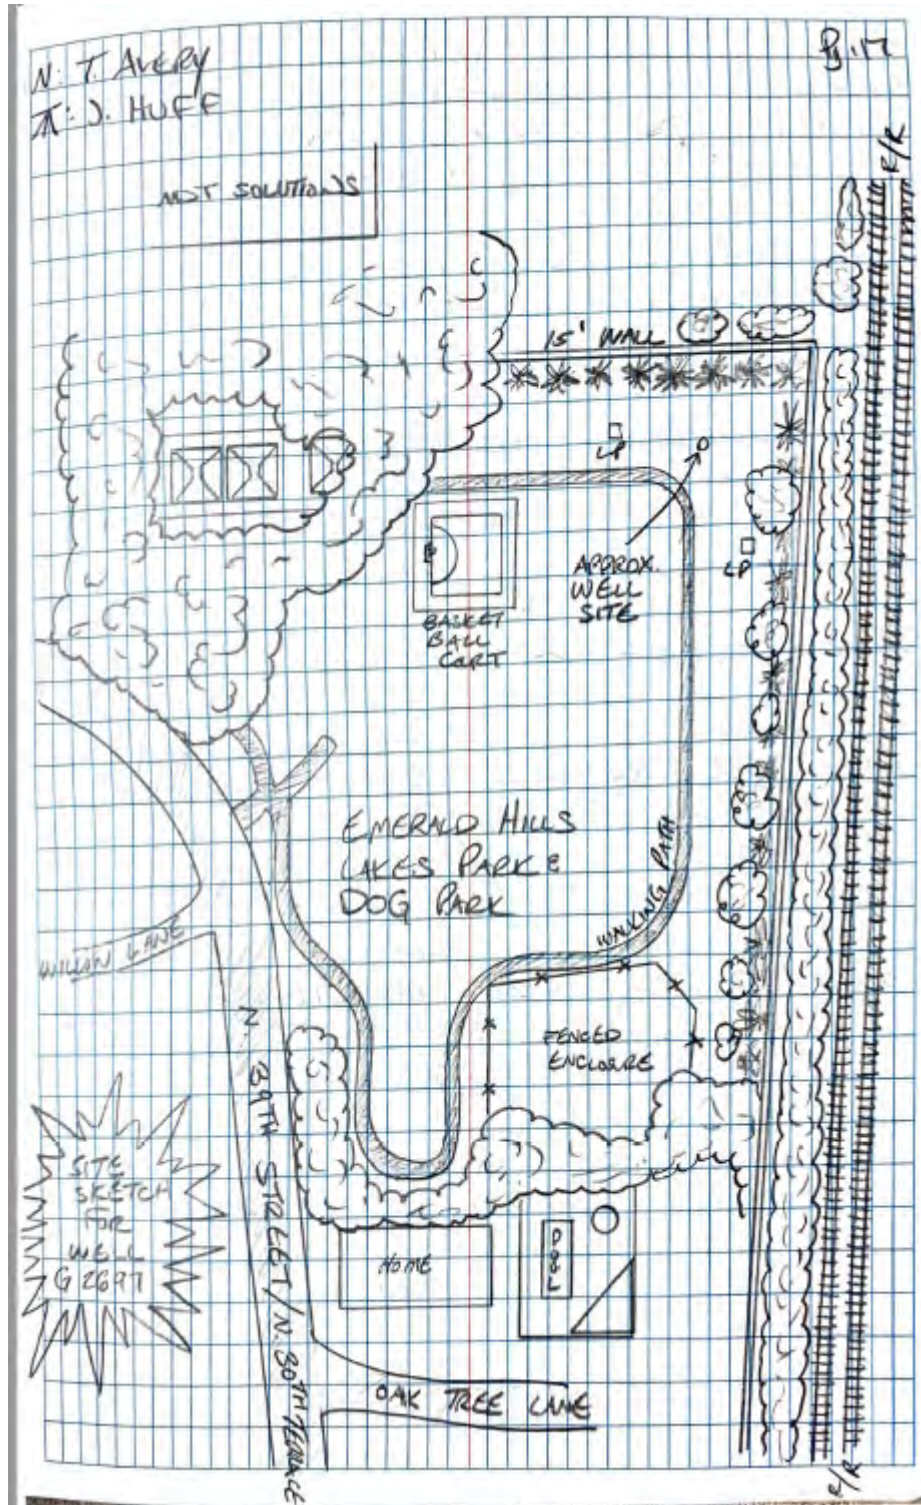 N: T. AVERY
Pg. 17
⊼: J. HUFF
R/R
NDT SOLUTIONS
15' WALL
LP
APPROX.
WELL
SITE
LP
BASKET
BALL
CORT
EMERALD HILLS
LAKES PARK &
DOG PARK
WALKING PATH
WILLOW LANE
FENCED
ENCLOSURE
N. 39TH STREET / N. 30TH TERRACE
SITE
SKETCH
FOR
WELL
G 2697
HOME
POOL
OAK TREE LANE
R/R